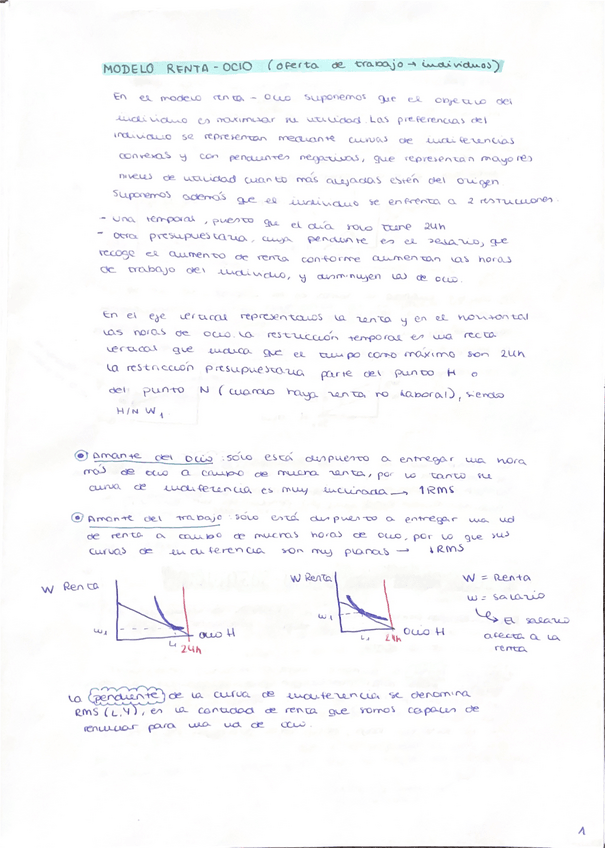 MODELO RENTA - OCIO (oferta de trabajo → individuos)
En el modelo renta - ocio suponemos que el objetivo del
individuo es maximizar su utilidad. Las preferencias del
individuo se representan mediante curvas de indiferencias
convexas y con pendientes negativas, que representan mayores
niveles de utilidad cuanto más alejadas estén del origen
Suponemos además que el individuo se enfrenta a 2 restricciones.
- una temporal, puesto que el día solo tiene 24h
- otra presupuestaria, cuya pendiente es el salario, que
recoge el aumento de renta conforme aumentan las horas
de trabajo del individuo, y disminuyen las de ocio.
En el eje vertical representamos la renta y en el horizontal
las horas de ocio. La restricción temporal es una recta
vertical que indica que el tiempo como máximo son 24h
La restricción presupuestaria parte del punto H o
del punto N (cuando haya renta no laboral), siendo
H/N W1
Amante del ocio: sólo está dispuesto a entregar una hora
más de ocio a cambio de mucha renta, por lo tanto su
curva de indiferencia es muy inclinada → ↑RMS
Amante del trabajo: sólo está dispuesto a entregar una ud
de renta a cambio de muchas horas de ocio, por lo que sus
curvas de indiferencia son muy planas → ↓RMS
W Renta
w1
L1
24h
Ocio H
W Renta
w1
L1
24h
Ocio H
W = Renta
w = salario
↳ El salario
afecta a la
renta
La pendiente de la curva de indiferencia se denomina
RMS (L,Y), es la cantidad de renta que somos capaces de
renunciar para una ud de ocio.
1